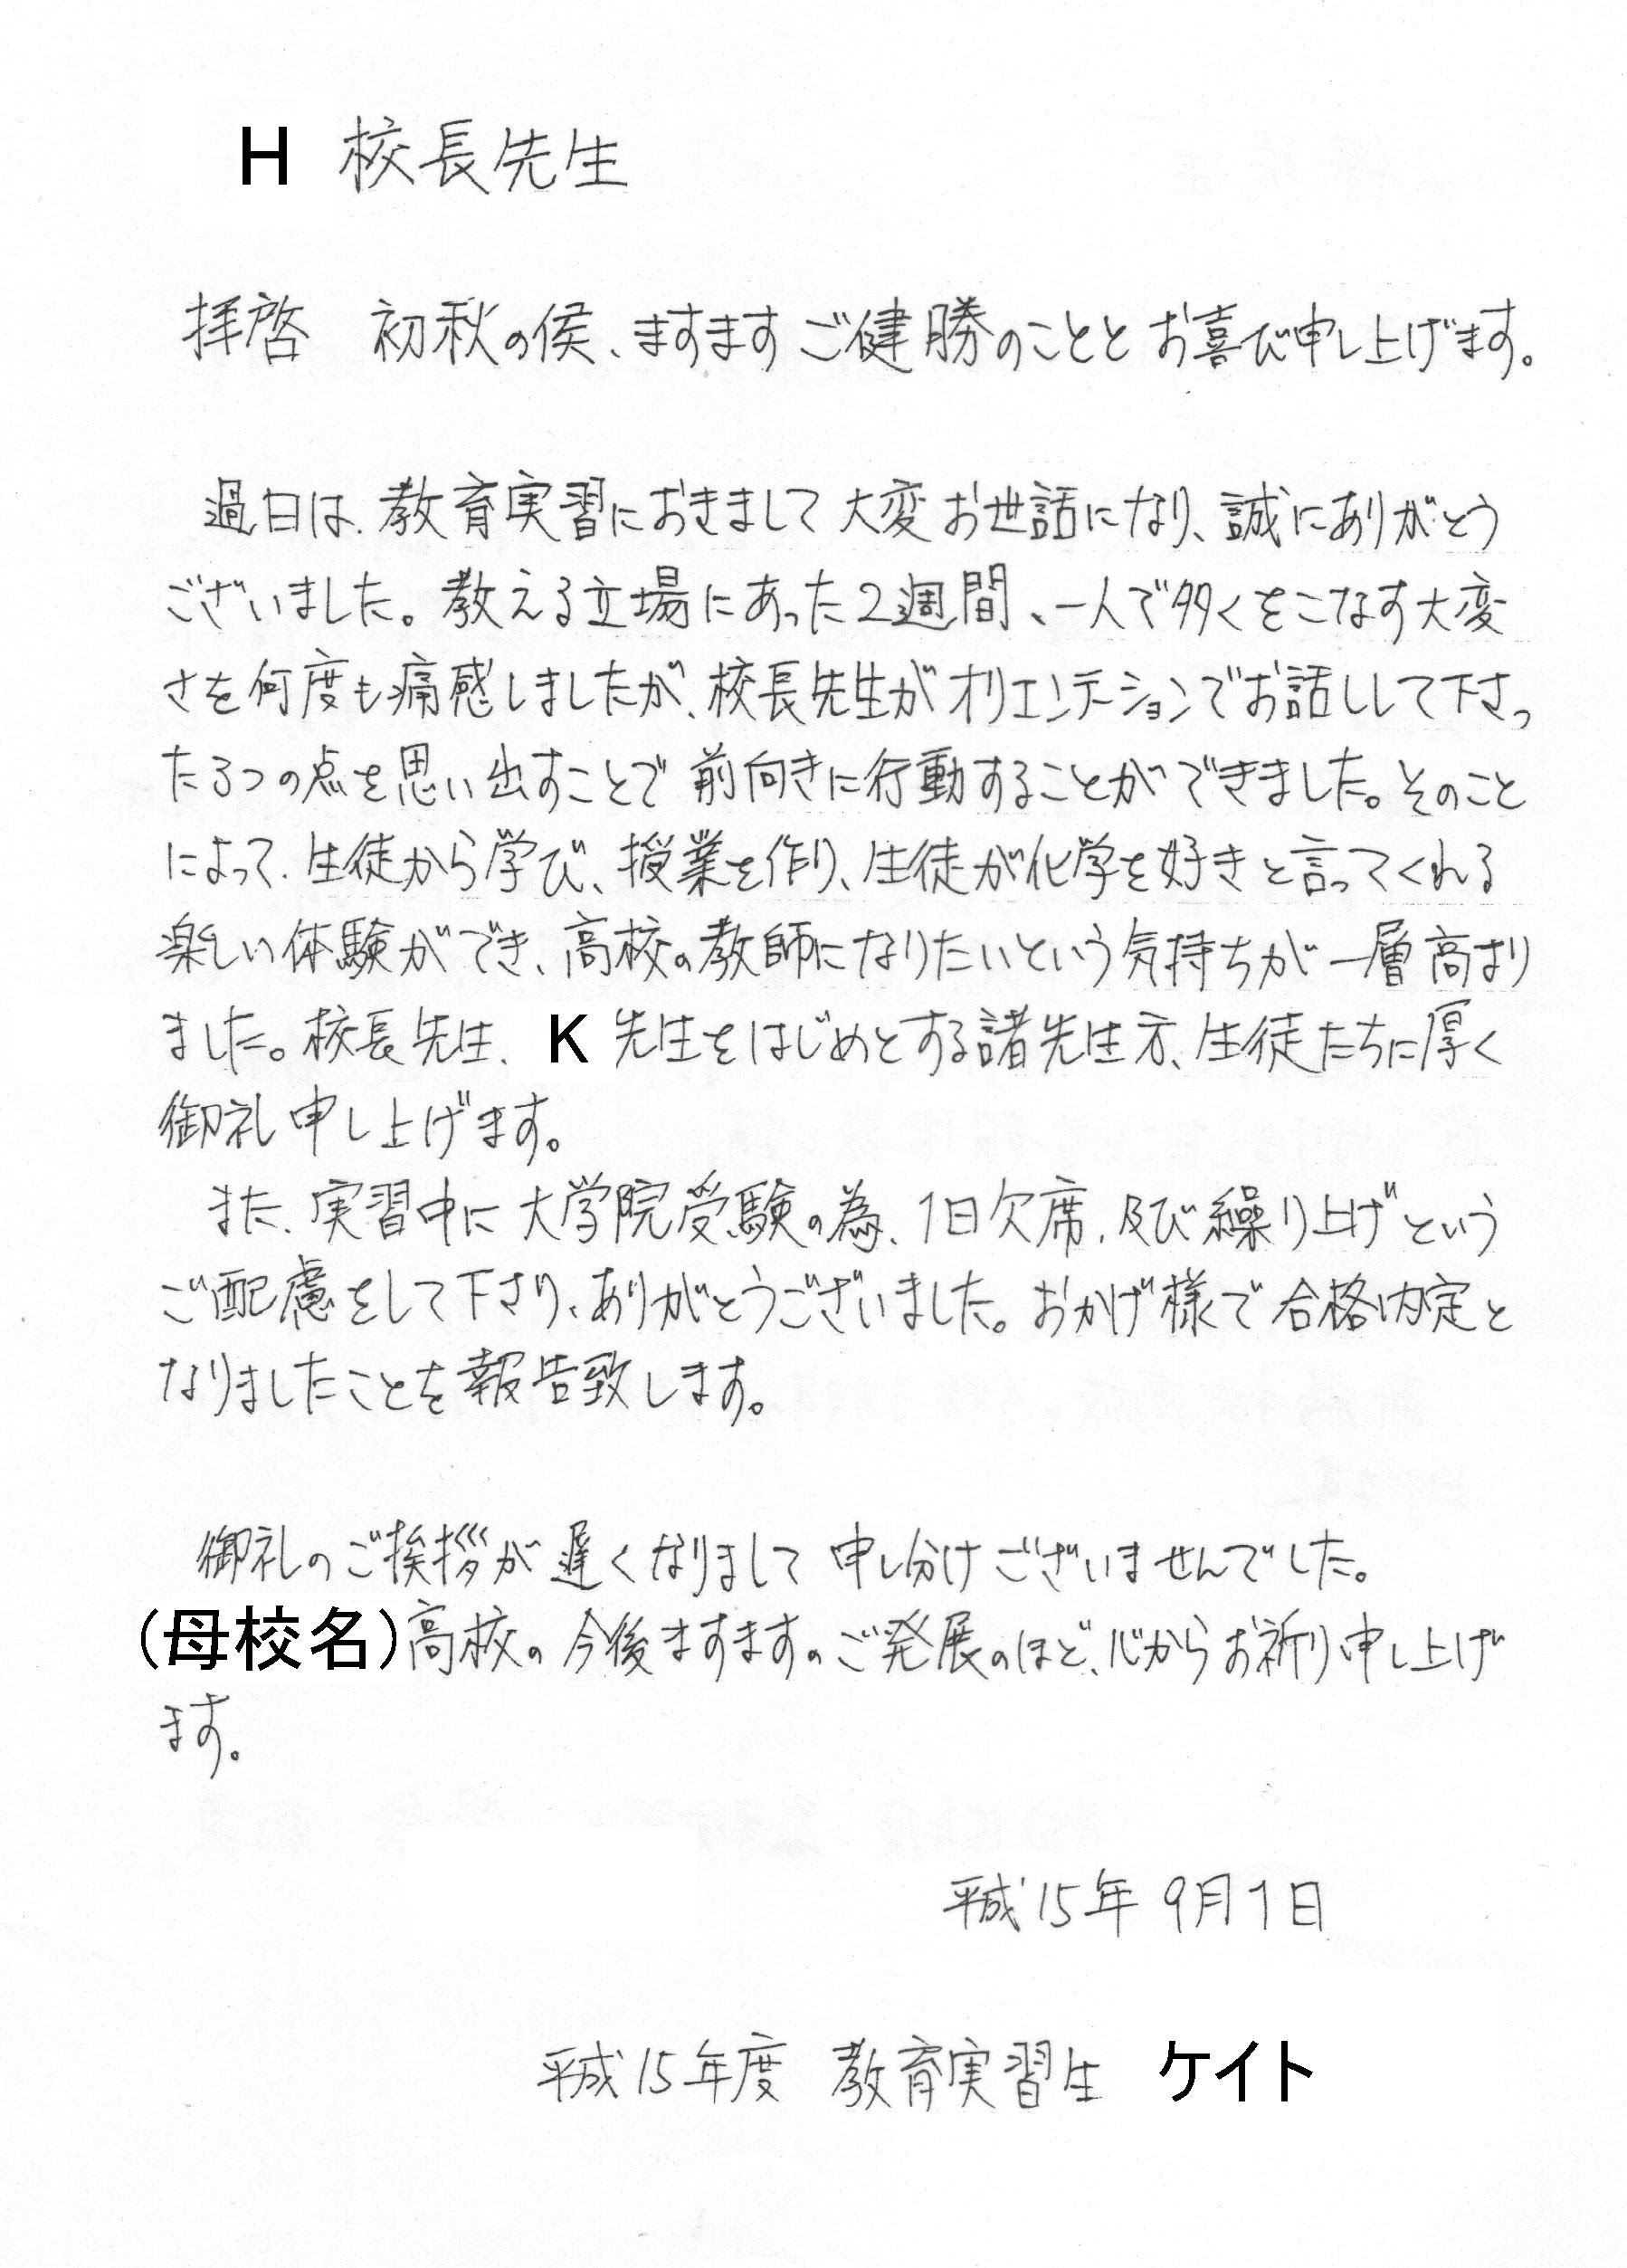 H 校長先生
拝啓 初秋の候、ますますご健勝のこととお喜び申し上げます。
過日は、教育実習におきまして大変お世話になり、誠にありがとう
ございました。教える立場にあった2週間、一人で多くをこなす大変
さを何度も痛感しましたが、校長先生がオリエンテーションでお話しして下さっ
た3つの点を思い出すことで前向きに行動することができました。そのこと
によって、生徒から学び、授業を作り、生徒が化学を好きと言ってくれる
楽しい体験ができ、高校の教師になりたいという気持ちが一層高まり
ました。校長先生、K先生をはじめとする諸先生方、生徒たちに厚く
御礼申し上げます。
また、実習中に大学院受験の為、1日欠席、及び繰り上げという
ご配慮をして下さり、ありがとうございました。おかげ様で合格内定と
なりましたことを報告致します。
御礼のご挨拶が遅くなりまして申し分けございませんでした。
(母校名)高校の今後ますますのご発展のほど、心からお祈り申し上げ
ます。
平成15年9月1日
平成15年度 教育実習生 ケイト